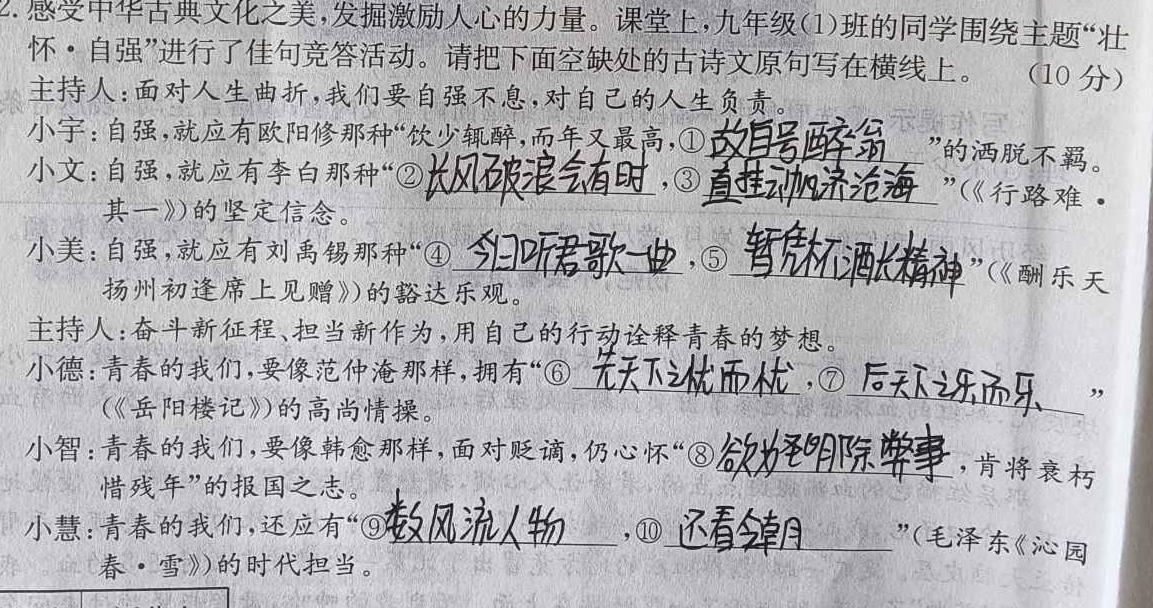 2. 感受中华古典文化之美,发掘激励人心的力量。课堂上,九年级(1)班的同学围绕主题“壮
怀·自强”进行了佳句竞答活动。请把下面空缺处的古诗文原句写在横线上。 (10 分)
主持人:面对人生曲折,我们要自强不息,对自己的人生负责。
小宇:自强,就应有欧阳修那种“饮少辄醉,而年又最高,①故自号醉翁”的洒脱不羁。
小文:自强,就应有李白那种“②长风破浪会有时,③直挂云帆济沧海”(《行路难·
其一》)的坚定信念。
小美:自强,就应有刘禹锡那种“④今日听君歌一曲,⑤暂凭杯酒长精神”(《酬乐天
扬州初逢席上见赠》)的豁达乐观。
主持人:奋斗新征程、担当新作为,用自己的行动诠释青春的梦想。
小德:青春的我们,要像范仲淹那样,拥有“⑥先天下之忧而忧,⑦后天下之乐而乐”
(《岳阳楼记》)的高尚情操。
小智:青春的我们,要像韩愈那样,面对贬谪,仍心怀“⑧欲为圣明除弊事,肯将衰朽
惜残年”的报国之志。
小慧:青春的我们,还应有“⑨数风流人物,⑩还看今朝”(毛泽东《沁园
春·雪》)的时代担当。